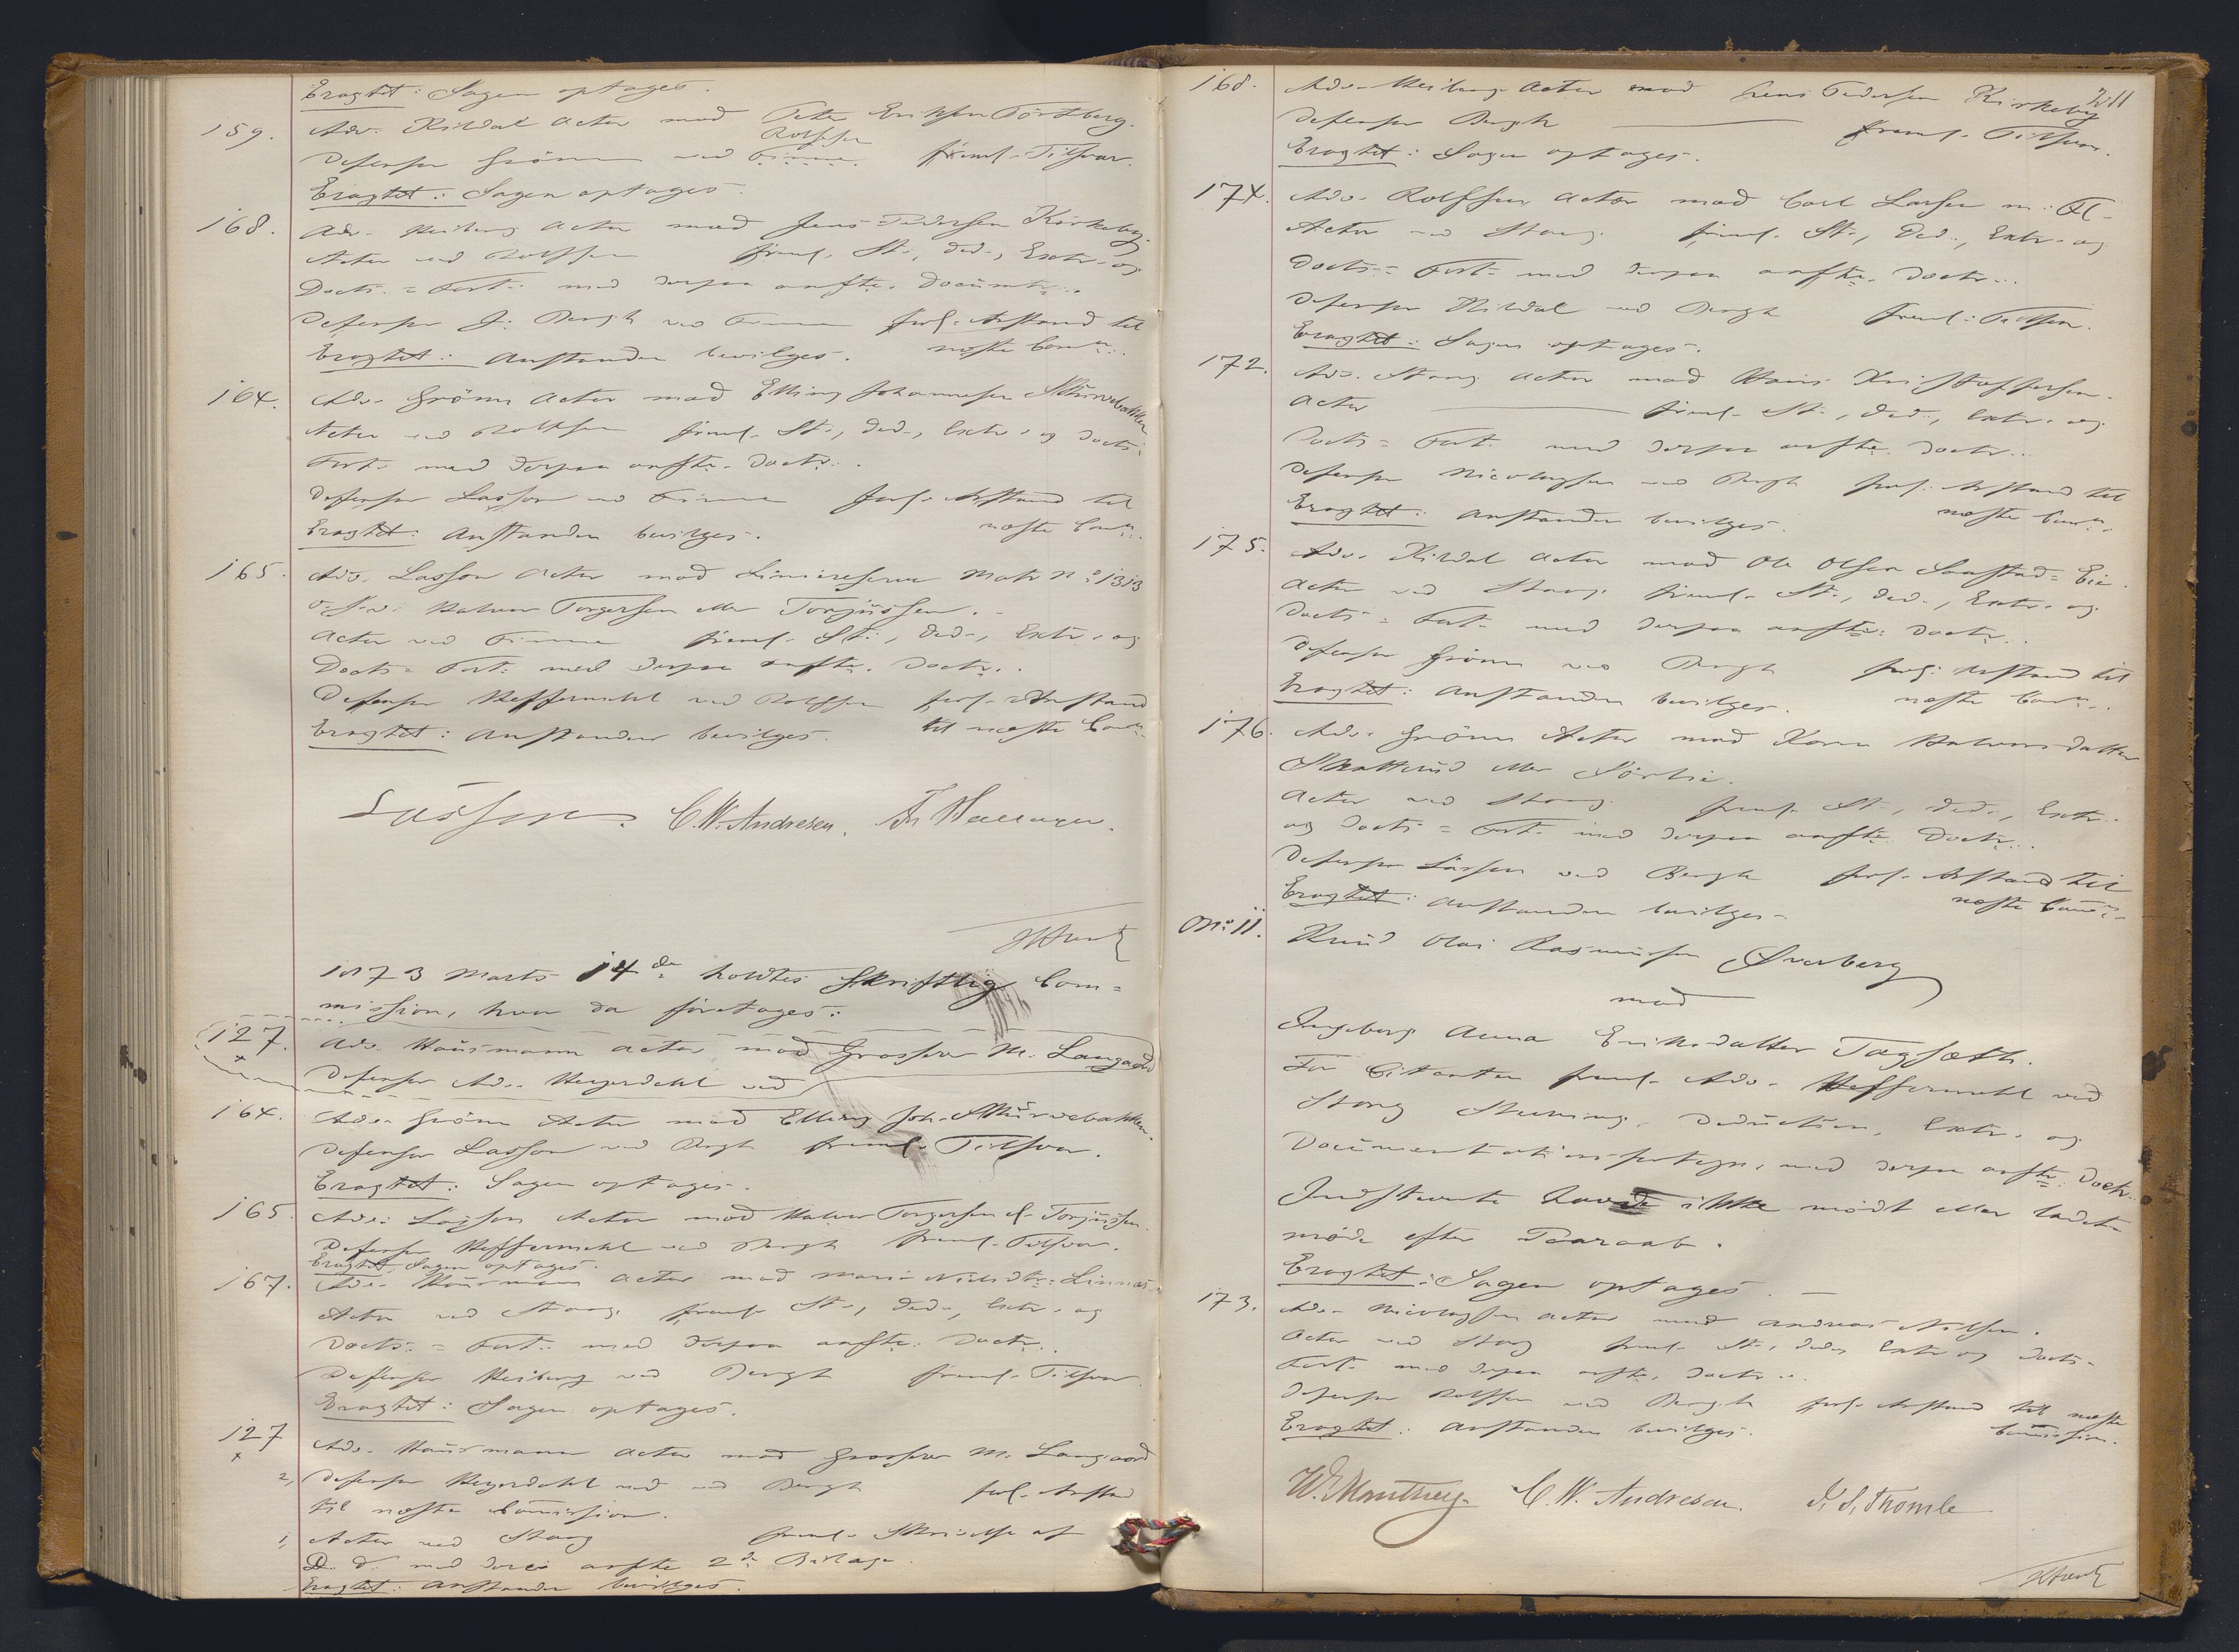 Eragtet: Sagen optages.
159. Adv. Kildal Actor mod Peter Eriksen Törtberg.
Rolfsen
Defensor Grönn ved Finne. freml. Tilsvar.
Eragtet: Sagen optages.
168. Adv. Heiberg Actor mod Jens Pedersen Kirkeby.
Actor ved Rolfsen freml. St., Ded., Extr. og
Docts. = Fort. med derpaa anfte. Documtr.
Defensor J. Bergh ved Finne forl. Anstand til
næste Comn.
Eragtet: Anstanden bevilges.
164. Adv. Grönn Actor mod Elling Johannesen Skurvebakken
Actor ved Rolfsen freml. St., Ded., Extr. og Docts.
Fort. med derpaa anfte. Doctr.
Defensor Lasson ved Finne forl. Anstand til
næste Comn.
Eragtet: Anstanden bevilges.
165. Adv. Lasson Actor mod Liniereserve Matr No 1313
Halvor Torgersen eller Torjussen.
Actor ved Finne freml. St., Ded., Extr. og
Docts. = Fort. med derpaa anfte. Doctr.
Defensor Heffermehl ved Rolfsen forl. Anstand
til næste Comn.
Eragtet: Anstanden bevilges.
Lasson. C.W. Andresen.
1873 Marts 14de holdtes Skriftlig Com=
mission, hvor da företages:
127. Adv. Hausmann Actor mod Grosserer M. Langaard
Defensor Adv. Heyerdahl ved
164. Adv. Grönn Actor mod Elling Joh. Skurvebakken.
Defensor Lasson ved Bergh freml. Tilsvar.
Eragtet: Sagen optages.
165. Adv. Lasson Actor mod Halvor Torgersen el. Torjussen.
Defensor Heffermehl ved Bergh freml. Tilsvar.
Eragtet: Sagen optages.
167. Adv. Hausmann Actor mod Marie Nielsdtr. Linnæs
Actor ved Stang freml. St., Ded., Extr. og
Docts. = Fort. med derpaa anfte. Doctr.
Defensor Heiberg ved Bergh freml. Tilsvar.
Eragtet: Sagen optages.
127 Adv. Hausmann Actor mod Grosserer M. Langaard
2, Defensor Heyerdahl ved Bergh forl. Anstand
til næste Commission.
1, Actor ved Stang freml. Skrivelse af
D. d. med deri anfte 2de Bilage.
Eragtet: Anstanden bevilges.
168. Adv. Heiberg Actor mod Jens Pedersen Kirkeby
Defensor Bergh freml. Tilsvar.
Eragtet: Sagen optages.
174. Adv. Rolfsen Actor mod Carl Larsen m: Fl.
Actor ved Stang freml. St., Ded., Extr. og
Docts. = Fort. med derpaa anfte. Doctr.
Defensor Kildal ved Bergh freml. Tilsvar.
Eragtet: Sagen optages.
172. Adv. Stang Actor mod Hans Kristoffersen.
Actor freml. St., Ded., Extr. og
Docts. = Fort. med derpaa anfte. Doctr.
Defensor Nicolaysen ved Bergh forl. Anstand til
næste Comn.
Eragtet: Anstanden bevilges.
175. Adv. Kildal Actor mod Ole Olsen Saastad=Eie.
Actor ved Stang freml. St., Ded., Extr. og
Docts. = Fort. med derpaa anfte. Doctr.
Defensor Grönn ved Bergh forl. Anstand til
næste Comn.
Eragtet: Anstanden bevilges.
176. Adv. Grönn Actor mod Karen Halvorsdatter
Skatterud eller Sörlie.
Actor ved Stang freml. St., Ded., Extr.
og Docts. = Fort. med derpaa anfte. Doctr.
Defensor Lasson ved Bergh forl. Anstand til
næste Comn.
Eragtet: Anstanden bevilges.
No. 11. Knud Olai Rasmussen Överberg
mod
Ingeborg Anna Eriksdatter Tagsæth.
For Citanten freml. Adv. Heffermehl ved
Stang Stevning, Deduction, Extr. og
Documentationsfortegn. med derpaa anfte. Doctr.
Indstevnte havde ikke mödt eller ladet
möde efter Paaraab.
Eragtet: Sagen optages.
173. Adv. Nicolaysen Actor mod Andreas Nilsen.
Actor ved Stang freml. St., Ded., Extr. og Docts.
Fort. med derpaa anfte. Doctr.
Defensor Rolfsen ved Bergh forl. Anstand til næste
Commission.
Eragtet: Anstanden bevilges.
C.W. Andresen. J. S. Thomle